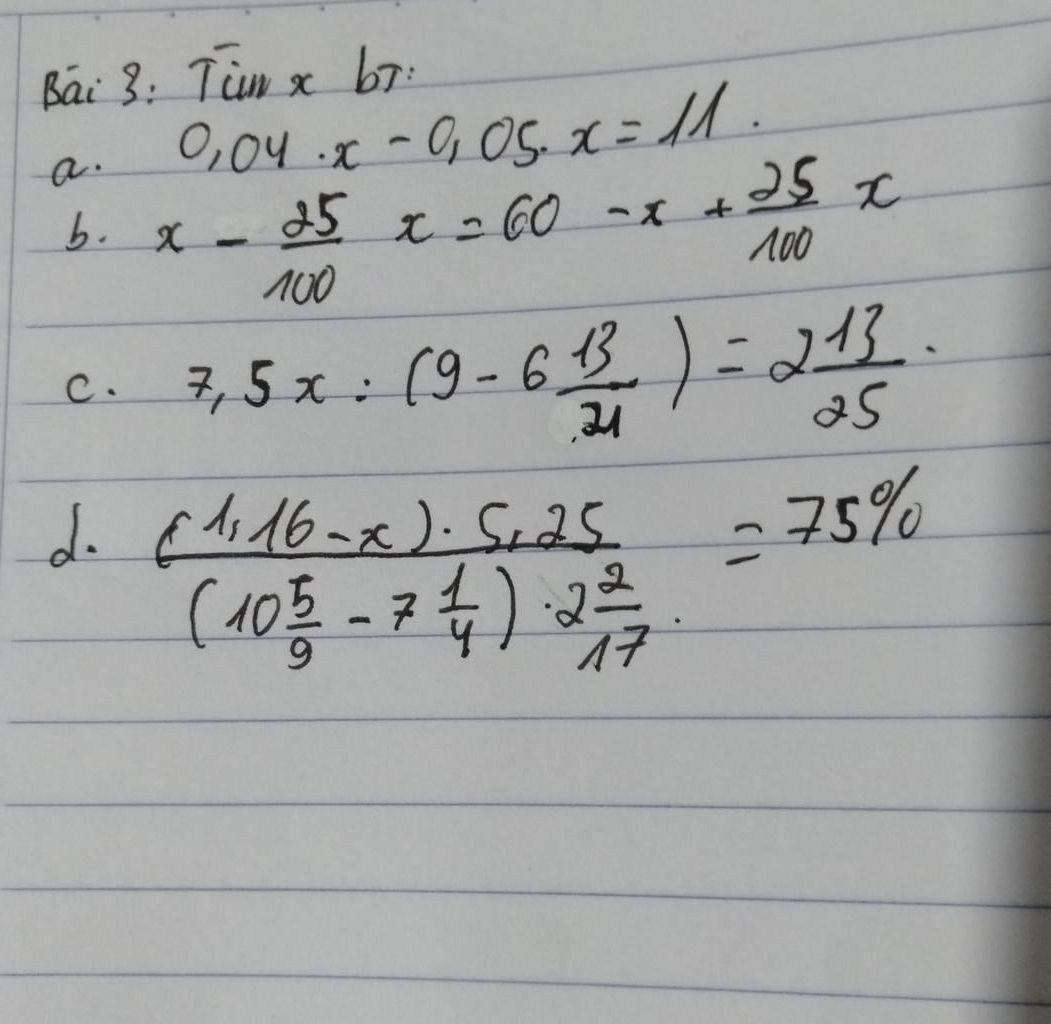 Bài 3: Tìm x bT:
a. 0,04 . x - 0,05. x = 11 .
b. x - 25/100 x = 60 - x + 25/100 x
c. 7,5 x : (9 - 6 13/21) = 2 13/25 .
d. ((1,16 - x) . 5,25)/((10 5/9 - 7 1/4) . 2 2/17) = 75% .